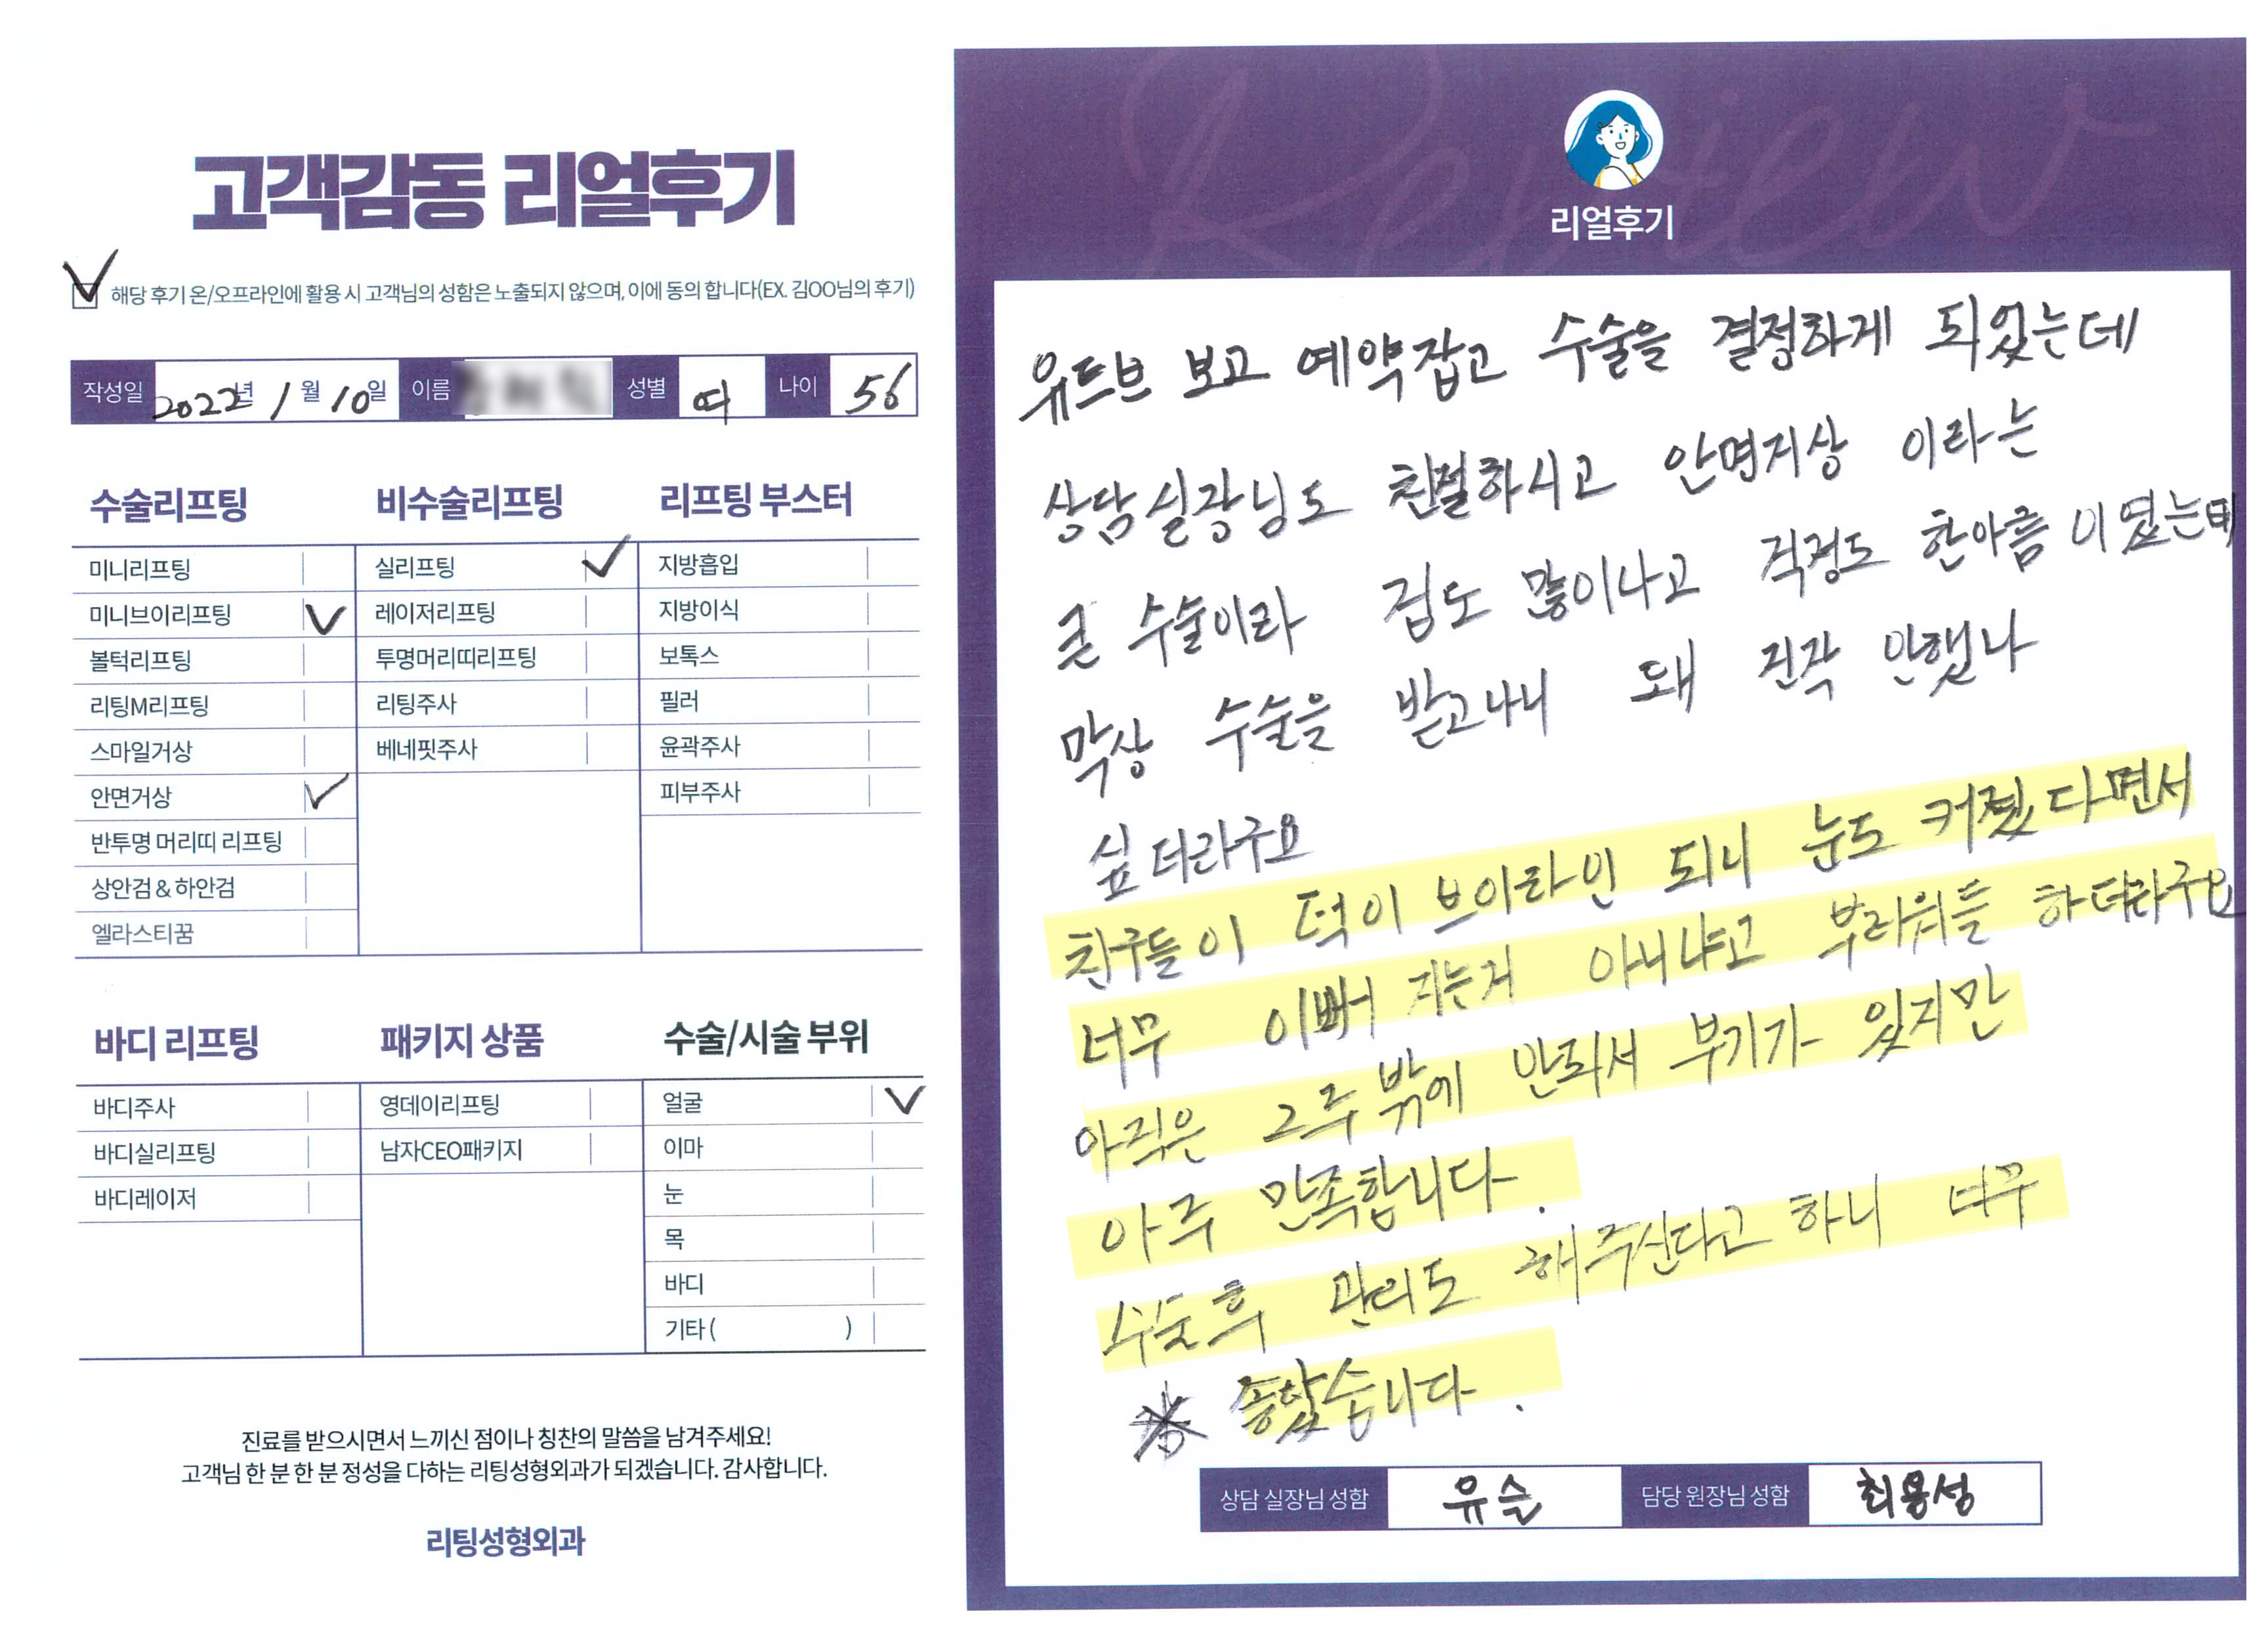 고객감동 리얼후기
해당 후기 온/오프라인에 활용 시 고객님의 성함은 노출되지 않으며, 이에 동의 합니다(EX. 김OO님의 후기)
작성일 2022년 1월 10일 이름 성별 여 나이 56
수술리프팅
미니리프팅
미니브이리프팅
볼턱리프팅
리팅M리프팅
스마일거상
안면거상
반투명 머리띠 리프팅
상안검 & 하안검
엘라스티꿈
비수술리프팅
실리프팅
레이저리프팅
투명머리띠리프팅
리팅주사
베네핏주사
리프팅 부스터
지방흡입
지방이식
보톡스
필러
윤곽주사
피부주사
바디 리프팅
바디주사
바디실리프팅
바디레이저
패키지 상품
영데이리프팅
남자CEO패키지
수술/시술 부위
얼굴
이마
눈
목
바디
기타 ( )
진료를 받으시면서 느끼신 점이나 칭찬의 말씀을 남겨주세요!
고객님 한 분 한 분 정성을 다하는 리팅성형외과가 되겠습니다. 감사합니다.
리팅성형외과
Review
리얼후기
유트브 보고 예약잡고 수술을 결정하게 되었는데
상담실장님도 친절하시고 안면거상 이라는
큰 수술이라 겁도 많이나고 걱정도 한아름 이였는데
막상 수술을 받고나니 왜 진작 안했나
싶더라구요
친구들이 턱이 브이라인 되니 눈도 커졌다면서
너무 이뻐 지는거 아니냐고 부러워들 하더라구요
아직은 2주 밖에 안되서 부기가 있지만
아주 만족합니다.
수술후 관리도 해주신다고 하니 너무
좋았습니다.
상담 실장님 성함 유슬 담당 원장님 성함 최용성